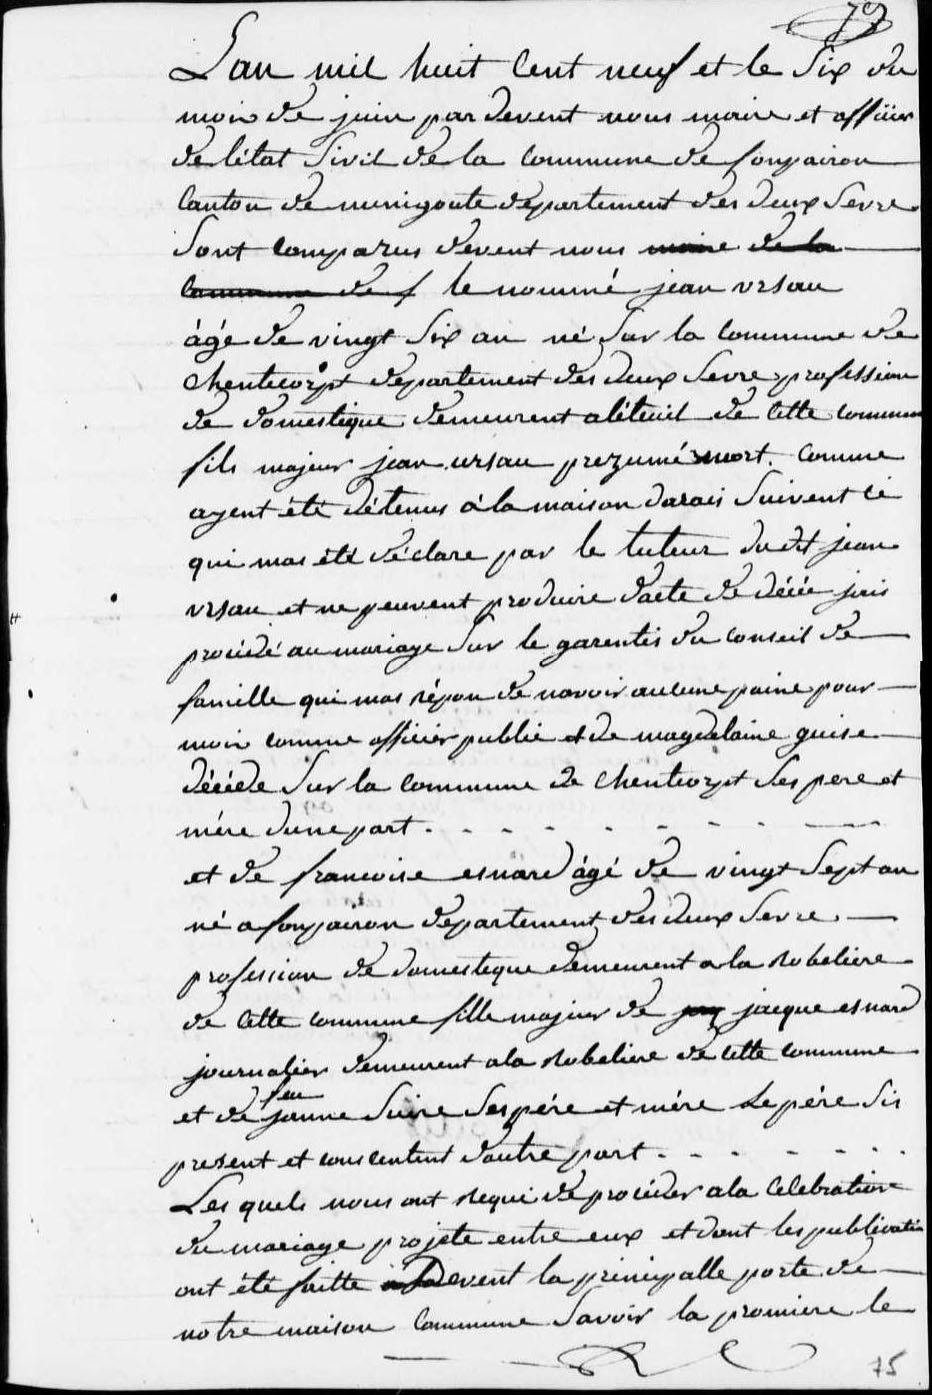 79
Lan mil huit Cent neuf et le Six du
mois de juin par devent nous maire et offiiier
de létat Sivil de la commune de fonpairon
Canton de menigoute departement des deux Sevre
Sont comparus devent nous maire de la
Commune de f le nommé jean ursau
àgé de vingt Six an né Sur la commune de
chentecorpt departement des deux Sevre profession
de domestique demeurent a léteuil de Cette commune
fils majeur jean ursau prezumé mort. Comme
ayent été détenus à la maison darais Suivent cé
qui mas été déclare par le tuteur du dit jean
ursau et ne peuvent produire dacte de décée jais
procédé au mariage Sur le garentis du conseil de
famille qui mas répon de navoir aucune paine pour
moir comme officier publié et de magdelaine guise
décéde Sur la commune de chentecorpt Ses pere et
mére dune part
et de francoise esnard àgé de vingt Sept an
né a fonpairon departement des deux Sevre
profession de domesteque demeurent a la Robeliere
de Cette commune fille majeur de jaq jacque esnard
journalier demeurent a la Robeliere de Cette commune
et de feu janne Suire Ses pére et mére Le pére Sis
present et consentent dautre part
Les quels nous ont Requi de procéder a la Celebration
du mariage projete entre eux et dont les publication
ont été faitte Devent la principalle porte de
notre maison Commune Savoir la promiere le
75